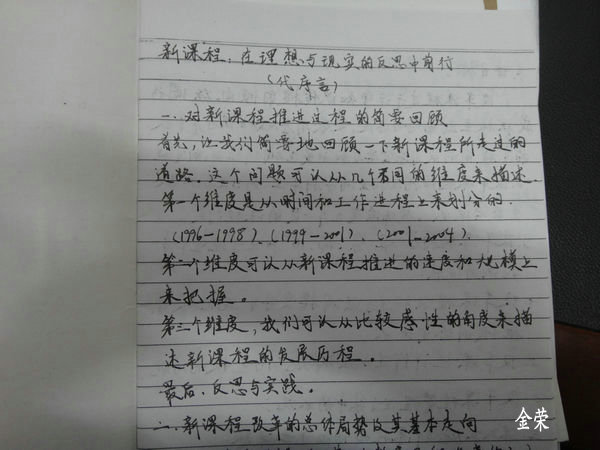 新课程：在理想与现实的反思中前行
（代序言）
一.对新课程推进过程的简要回顾
首先，让我们简要地回顾一下新课程所走过的
道路.这个问题可以从几个不同的维度来描述.
第一个维度是从时间和工作进程上来划分的.
（1996-1998）、（1999-2001）、（2001-2004）.
第二个维度可以从新课程推进的速度和规模上
来把握。
第三个维度，我们可以从比较感性的角度来描
述新课程的发展历程。
最后、反思与实践。
二.新课程改革的总体局势及其基本走向
金荣